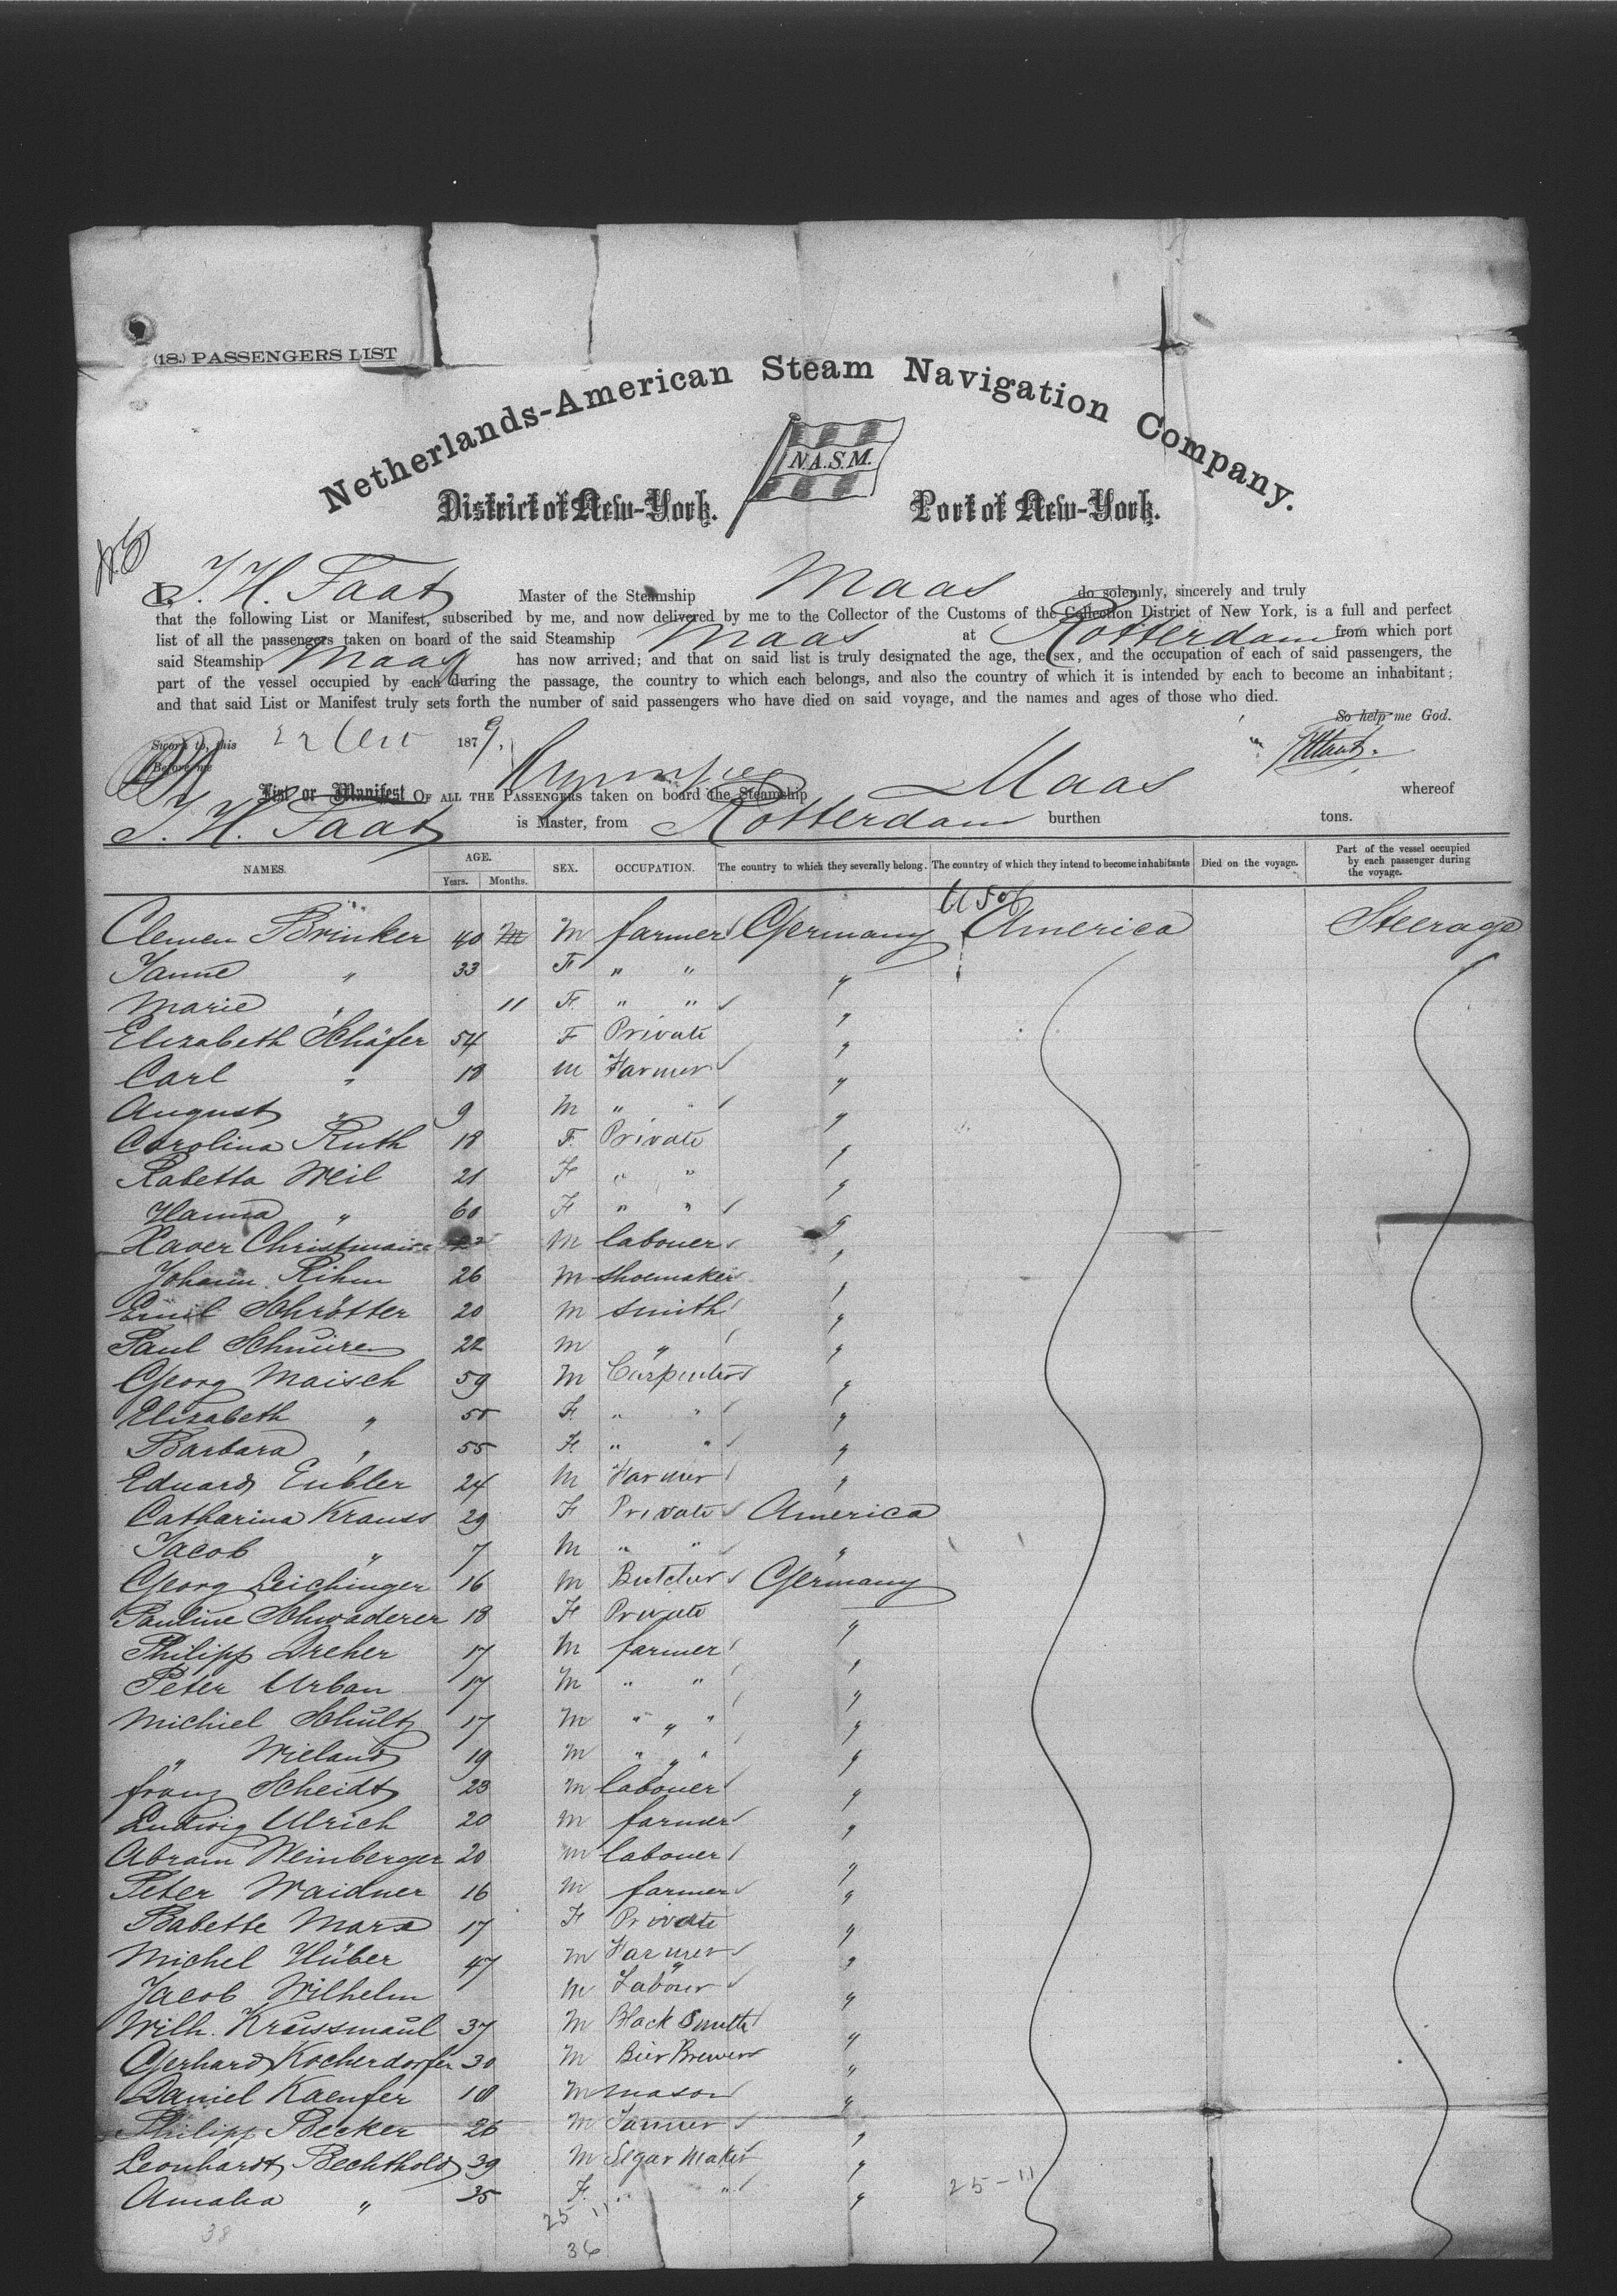 (18.) PASSENGERS LIST
Netherlands-American Steam Navigation Company.
N.A.S.M.
District of New-York. Port of New-York.
I, J. H. Taat Master of the Steamship Maas do solemnly, sincerely and truly
that the following List or Manifest, subscribed by me, and now delivered by me to the Collector of the Customs of the Collection District of New York, is a full and perfect
list of all the passengers taken on board of the said Steamship Maas at Rotterdam from which port
said Steamship Maas has now arrived; and that on said list is truly designated the age, the sex, and the occupation of each of said passengers, the
part of the vessel occupied by each during the passage, the country to which each belongs, and also the country of which it is intended by each to become an inhabitant;
and that said List or Manifest truly sets forth the number of said passengers who have died on said voyage, and the names and ages of those who died.
So help me God.
Sworn to, this 22 1879.
Before me
List or Manifest OF ALL THE PASSENGERS taken on board the Steamship Maas whereof
J. H. Taat is Master, from Rotterdam burthen tons.
NAMES. AGE. Years. Months. SEX. OCCUPATION. The country to which they severally belong. The country of which they intend to become inhabitants Died on the voyage. Part of the vessel occupied by each passenger during the voyage.
U S of
Clemen Brinker 40 M M farmer Germany America Steerage
Janne " 33 F " " "
Marie " 11 F " " "
Elizabeth Schäfer 54 F Private "
Carl " 18 M Farmer "
August " 9 M " " "
Carolina Ruth 18 F. Private "
Rabetta Weil 21 F " " "
Hanna " 60 F " " "
Xaver 22 M labouer "
Johann Rihm 26 M shoemaker "
Emil Schrötter 20 M smith "
Paul Schnüren 22 M " "
Georg Maisch 59 M Carpenter "
Elizabeth " 55 F. " " "
Barbara " 55 F. " " "
Eduard Eubler 24 M Farmer "
Catharina Krauss 29 F Private America
Jacob " 7 M " " "
Georg Leichinger 16 M Butcher Germany
Pauline Schwaderer 18 F Private "
Philipp Dreher 17 M farmer "
Peter Urban 17 M " " "
Michiel Schültz 17 M " " " "
" Wieland 19 M " " " "
franz Scheidt 23 M labouer "
Ludwig Ulrich 20 M farmer "
Abram Weinberger 20 M labouer "
Peter Waidner 16 M farmer "
Babette Marx 17 F Private "
Michel Hüber 47 M Farmer "
Jacob Wilhelm " M Labour "
Wilh. Kraussmaul 37 M Black Smith "
Gerhard Kocherdorfer 30 M Bier Brewer "
Daniel Kaenfer 18 M mason "
Philipp Becker 26 M "
Leonhardt Bechthold 39 M Segar Maker "
Amalia " 35 F. " " "
25-11
25 11
38
36